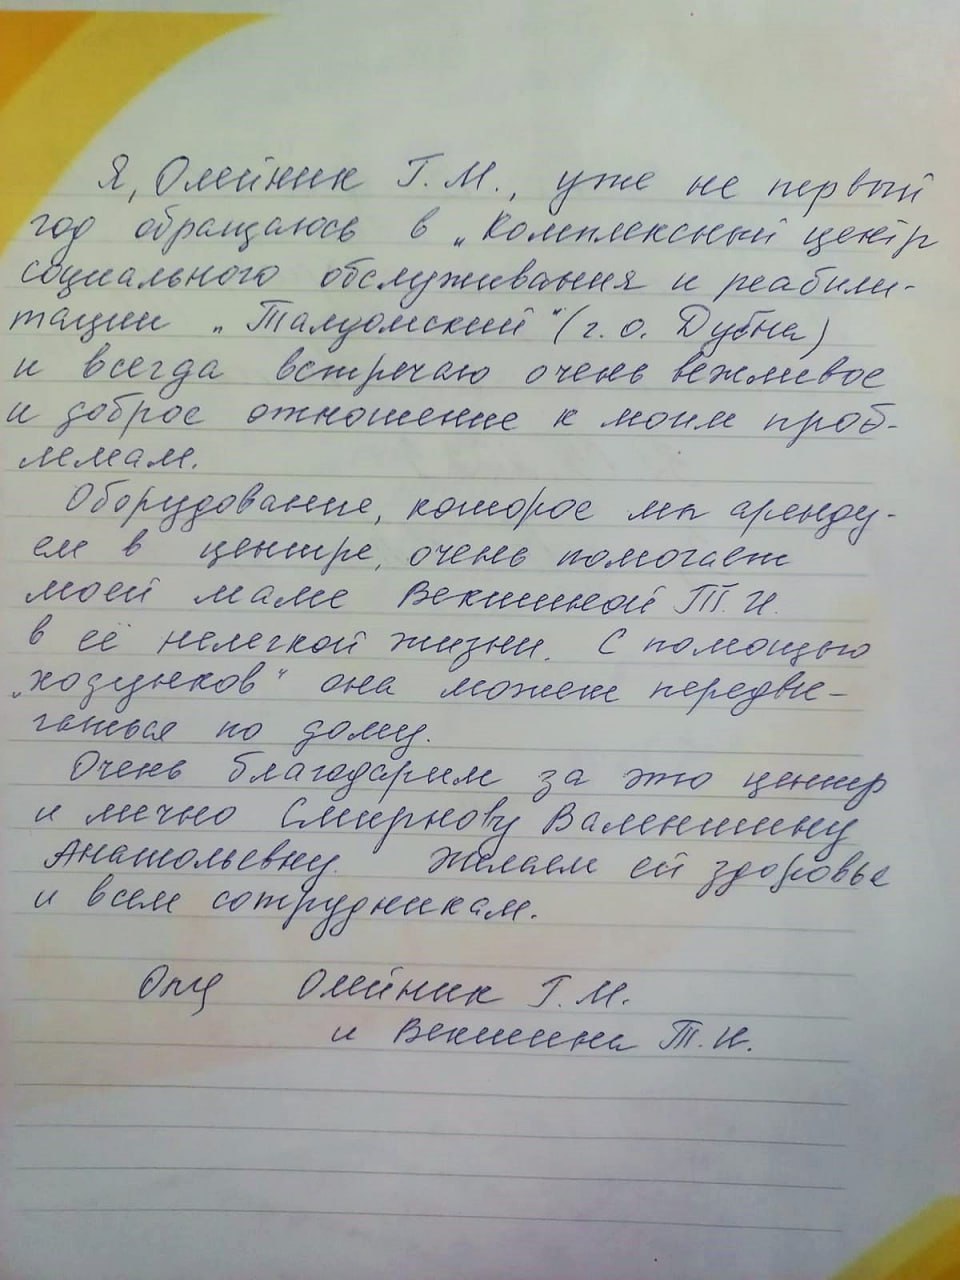 Я, Олейник Г.М., уже не первый
год обращаюсь в „Комплексный центр
социального обслуживания и реабили-
тации „Талдомский" (г.о. Дубна)
и всегда встречаю очень вежливое
и доброе отношение к моим проб-
лемам.
Оборудование, которое мы аренду-
ем в центре, очень помогает
моей маме Векшиной Т.И.
в её нелегкой жизни. С помощью
„ходунков" она может передви-
гаться по дому.
Очень благодарим за это центр
и лично Смирнову Валентину
Анатольевну. Желаем ей здоровье
и всем сотрудникам.
Олейник Г.М.
и Векшина Т.И.